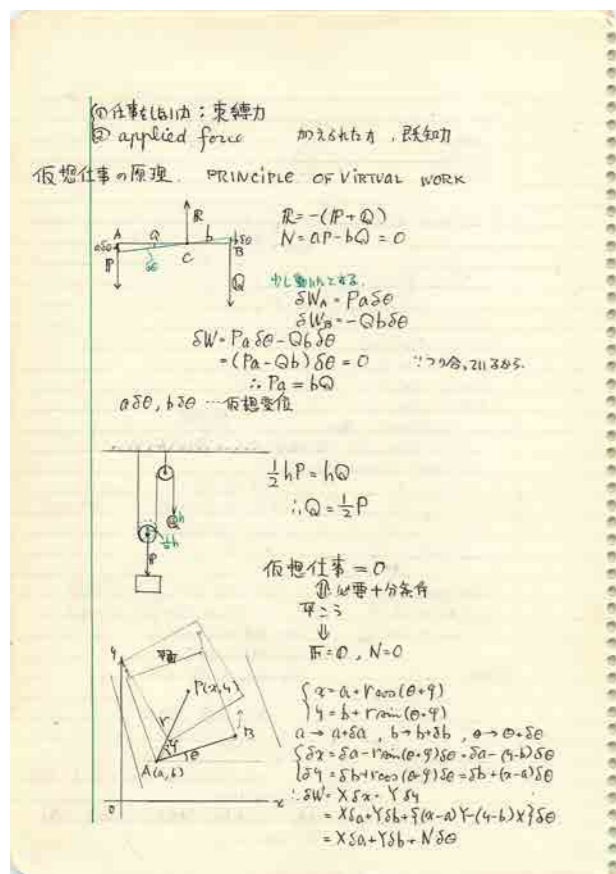 ① 仕事をしない力 : 束縛力
② applied force 加えられた力 , 既知力
仮想仕事の原理. PRINCIPLE OF VIRTUAL WORK
R = -(P+Q)
N = aP - bQ = 0
A a b B
aδθ bδθ
δθ C
R
P Q
少し動いたとする.
δW_A = Paδθ
δW_B = -Qbδθ
δW = Paδθ - Qbδθ
= (Pa - Qb)δθ = 0 ∵つり合っているから.
∴ Pa = bQ
aδθ, bδθ … 仮想変位
½hP = hQ
∴ Q = ½P
Q h
½h
P
仮想仕事 = 0
⇕ 必要十分条件
⇓
F = 0 , N = 0
y
P(x,y)
r
φ
θ
B
A(a,b)
0 x
{ x = a + r cos(θ+φ)
y = b + r sin(θ+φ)
a → a+δa , b → b+δb , θ → θ+δθ
{ δx = δa - r sin(θ+φ)δθ = δa - (y-b)δθ
δy = δb + r cos(θ+φ)δθ = δb + (x-a)δθ
∴ δW = Xδx + Yδy
= Xδa + Yδb + {(x-a)Y - (y-b)X}δθ
= Xδa + Yδb + Nδθ